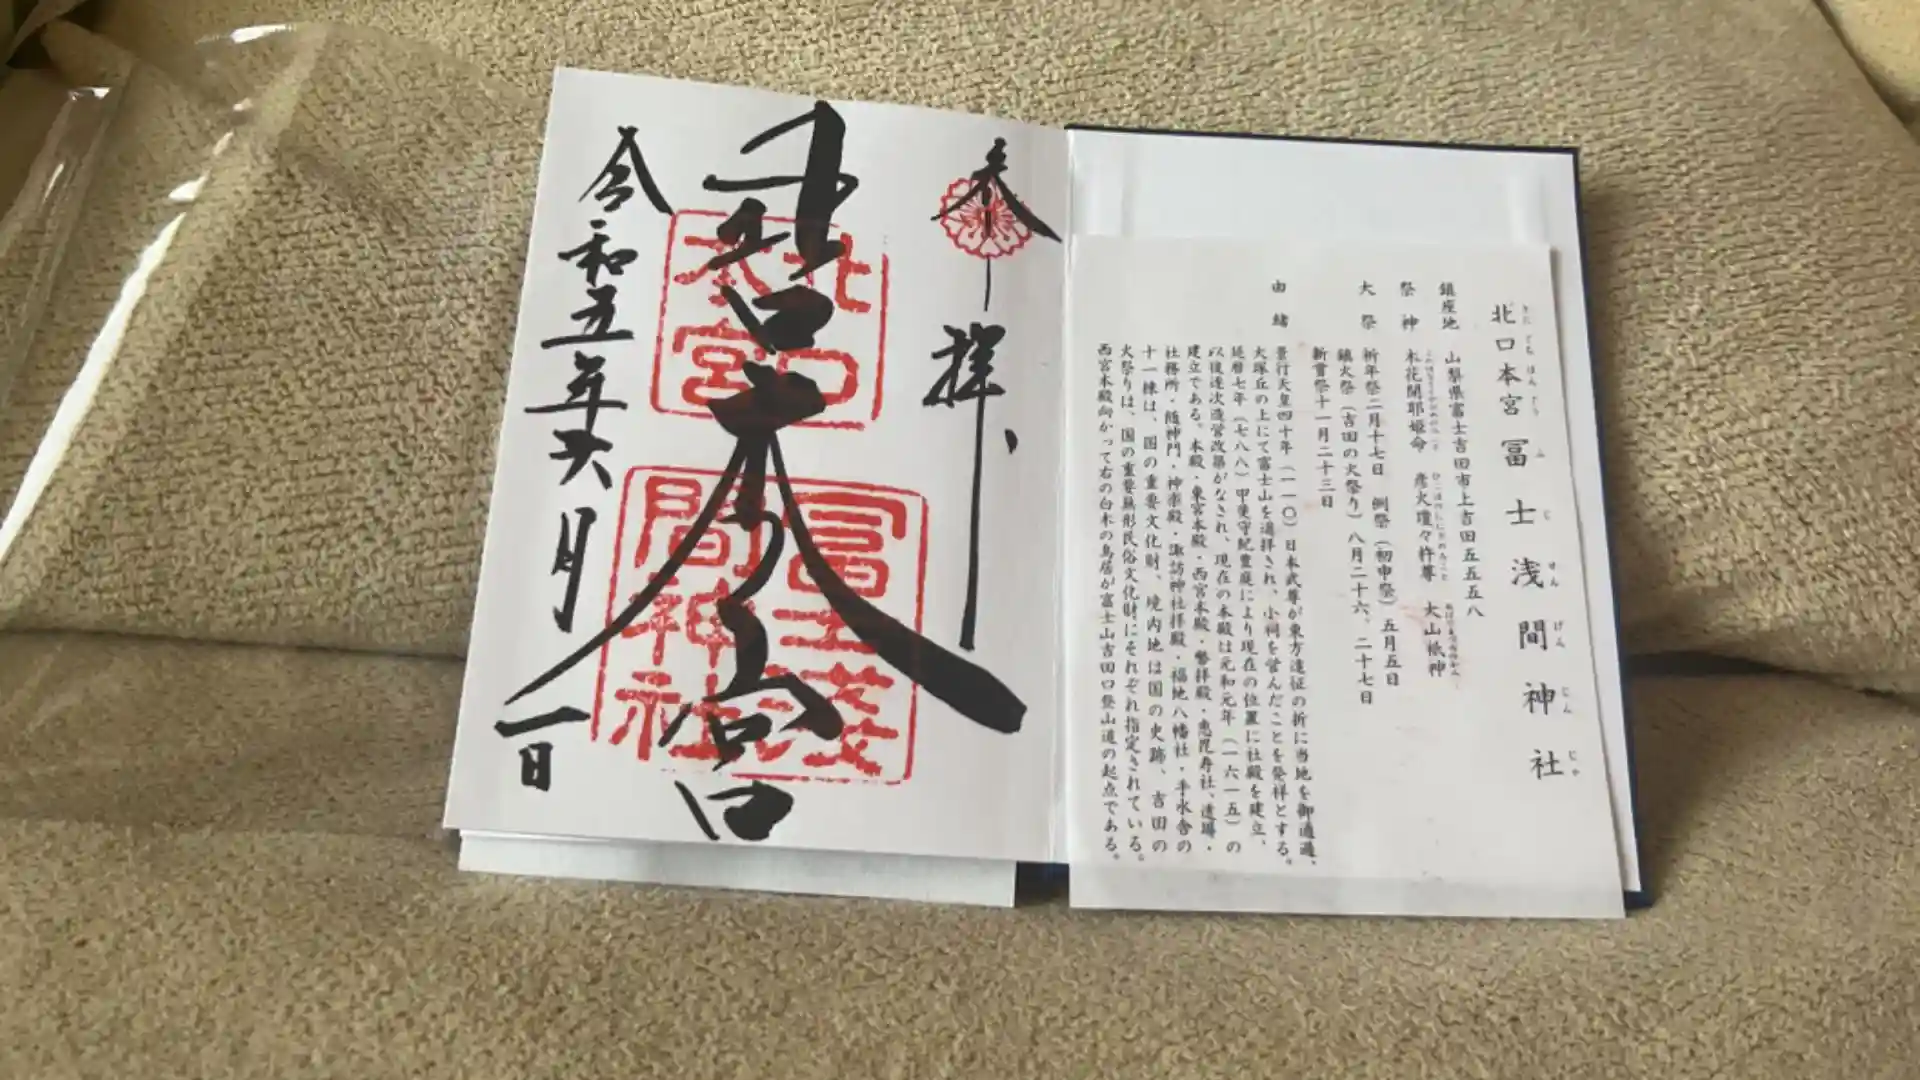 北口本宮冨士浅間神社
きたぐちほんぐうふじせんげんじんじゃ
鎮座地 山梨県富士吉田市上吉田五五五八
祭神 木花開耶姫命 彦火瓊々杵尊 大山祇神
大祭 祈年祭二月十七日 例祭(初申祭)五月五日
鎮火祭(吉田の火祭り)八月二十六、二十七日
新嘗祭十一月二十三日
由緒 景行天皇四十年(一一〇)日本武尊が東方遠征の折に当地を御通過、
大塚丘の上にて富士山を遥拝され、小祠を営んだことを発祥とする。
延暦七年(七八八)甲斐守紀豊庭により現在の位置に社殿を建立、
以後逐次造営改築がなされ、現在の本殿は元和元年(一六一五)の
建立である。本殿・東宮本殿・西宮本殿・幣拝殿・恵毘寿社、透塀・
社務所・随神門・神楽殿・諏訪神社拝殿・福地八幡社・手水舎の
十一棟は、国の重要文化財、境内地は国の史跡、吉田の
火祭りは、国の重要無形民俗文化財にそれぞれ指定されている。
西宮本殿向かって右の白木の鳥居が富士山吉田口登山道の起点である。
奉拝
北口本宮
北口
本宮
冨士浅
間神社
令和五年六月一日